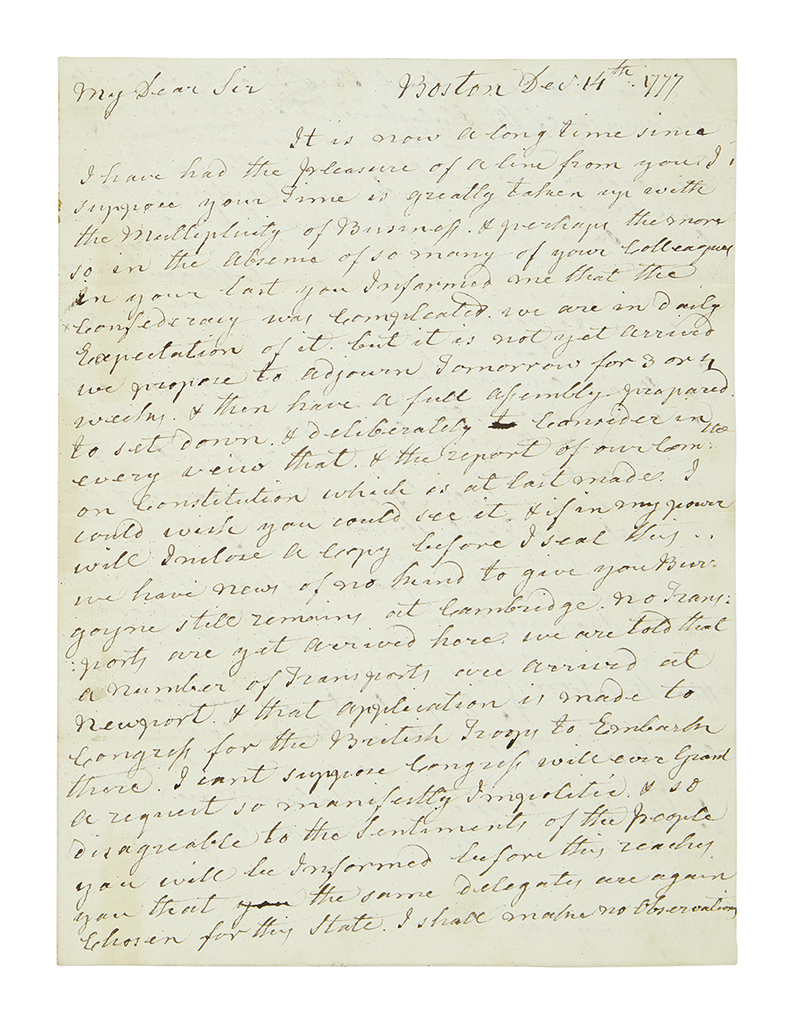 My Dear Sir Boston Decr. 14th. 1777
It is now a long time since
I have had the pleasure of a line from you. I
suppose your Time is greatly taken up with
the Multiplicity of Business. & perhaps the more
so in the absence of so many of your Colleagues
In your last you Informed me that the
Confederacy was Compleated. we are in daily
Expectation of it. but it is not yet arrived
we propose to adjourn Tomorrow for 3 or 4
weeks. & then have a full assembly prepared.
to set down. & deliberately to Consider in
every view that. & the report of our Comttee:
on Constitution which is at last made. I
could wish you could see it. & if in my power
will Inclose a Copy before I seal this ..
we have news of no kind to give you Bur:
goyne still remains at Cambridge. no Trans:
:ports are yet arrived here. we are told that
a number of Transports are arrived at
Newport. & that application is made to
Congress for the British Troops to Embark
there. I cant suppose Congress will ever Grant
a request so manifestly Impolitic. & so
disagreable to the Sentiments of the People
you will be Informed before this reaches
you that you the same delegates are again
Chosen for this State. I shall make no Observations